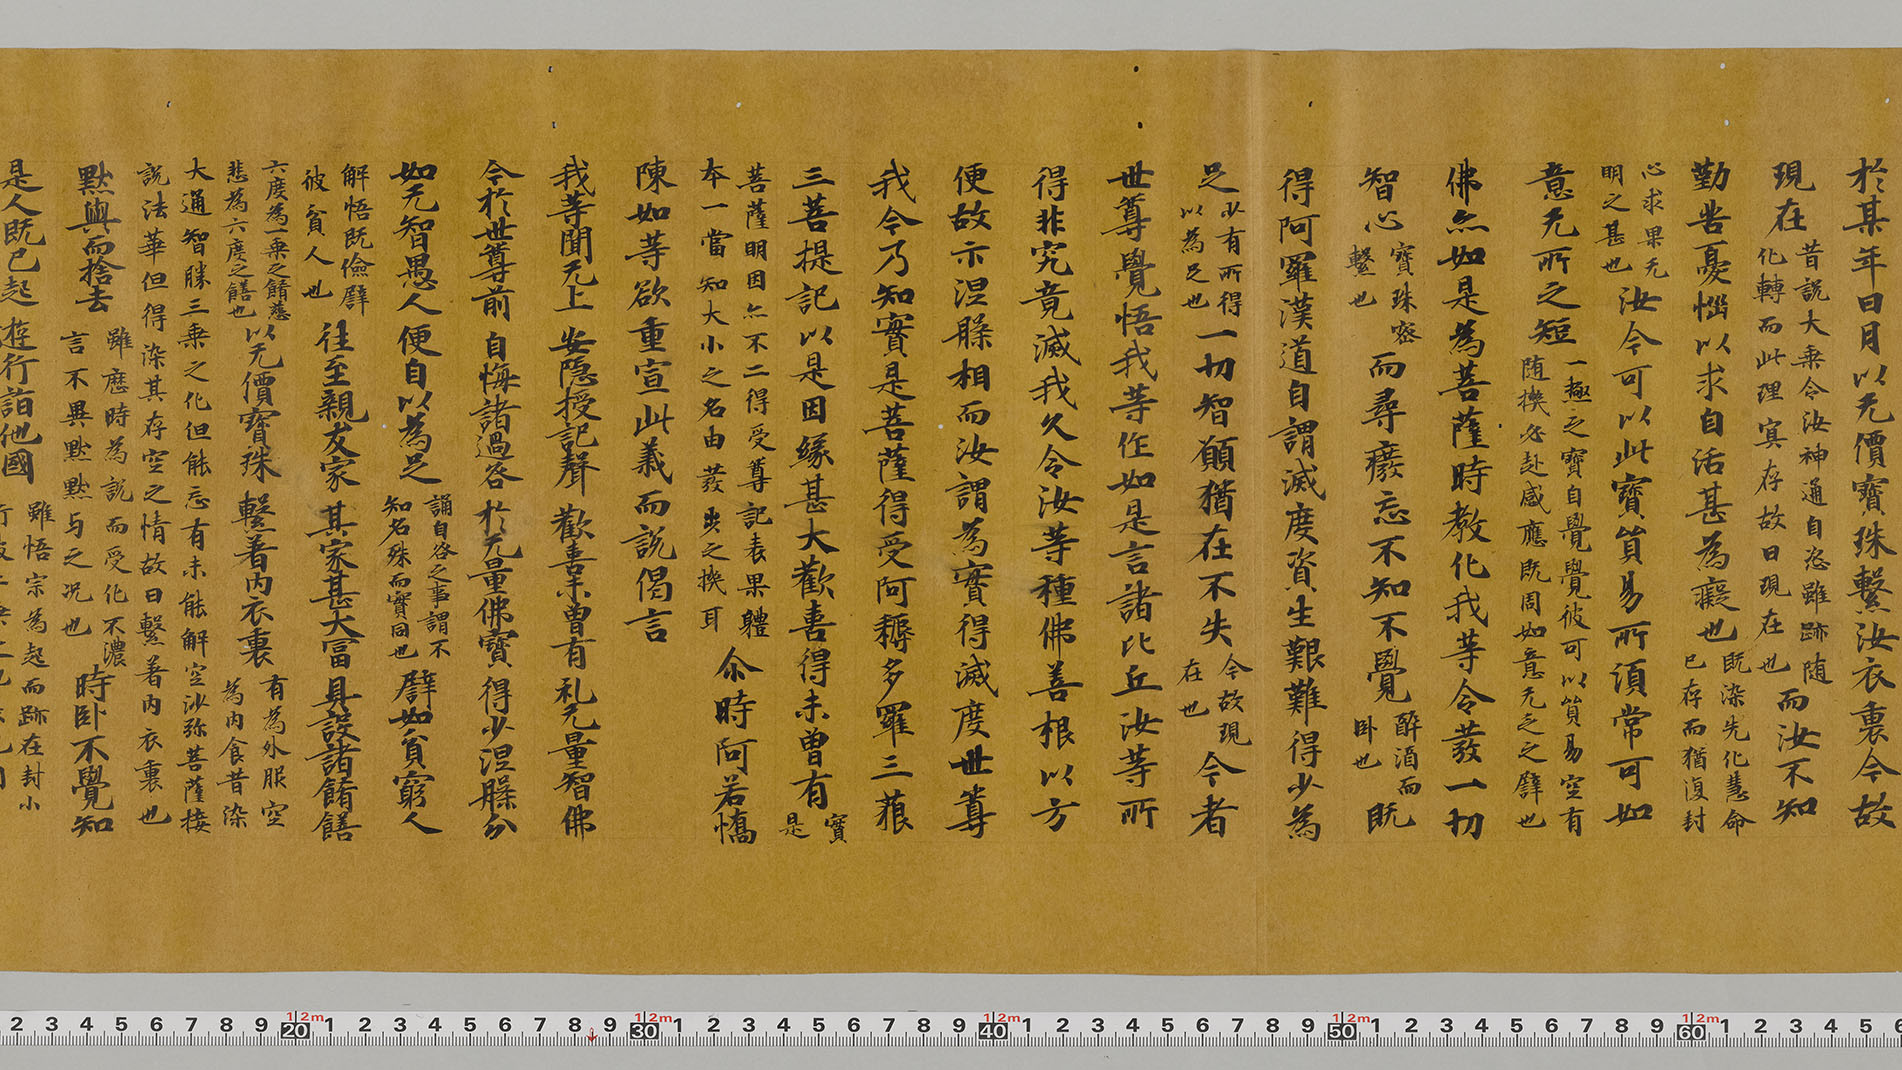 於某年日月以无價寶珠繫汝衣裏今故
現在昔説大乗令汝神通自恣雖跡随化轉而此理寘存故曰現在也而汝不知
勤苦憂惱以求自活甚為癡也既染先化慧命已存而猶復封
心求果无明之甚也汝今可以此寶貿易所須常可如
意无所之短一極之寶自覺覺彼可以貿易空有随揆必赴感應既周如意无之之譬也
佛亦如是為菩薩時教化我等令發一切
智心寶珠密繫也而尋癈忘不知不覺酔酒而卧也既
得阿羅漢道自謂滅度資生艱難得少為
足少有所得以為足也一切智願猶在不失今故現在也今者
世尊覺悟我等作如是言諸比丘汝等所
得非究竟滅我久令汝等種佛善根以方
便故示涅槃相而汝謂為實得滅度世尊
我今乃知實是菩薩得受阿耨多羅三藐
三菩提記以是因緣甚大歡喜得未曾有實是
菩薩明因亦不二得受尊記表果軆本一當知大小之名由發之揆耳尒時阿若憍
陳如等欲重宣此義而説偈言
我等聞无上 安隠授記聲 歡喜未曾有 礼无量智佛
今於世尊前 自悔諸過咎 於无量佛寶 得少涅槃分
如无智愚人 便自以為足誦自咎之事謂不知名殊而實同也 譬如貧窮人
解悟既儉譬彼貧人也 往至親友家 其家甚大冨 具設諸餚饍
六度為一乗之餚慈悲為六度之饍也 以无價寶珠 繫著内衣裏有為外服空為内食昔染
大通智勝三乗之化但能忘有未能解空沙弥菩薩接説法華但得染其存空之情故曰繫著内衣裏也
黙與而捨去雖麿時為説而受化不濃言不異黙黙与之况也 時卧不覺知
是人既已起 遊行詣他國雖悟宗為起而跡在封小